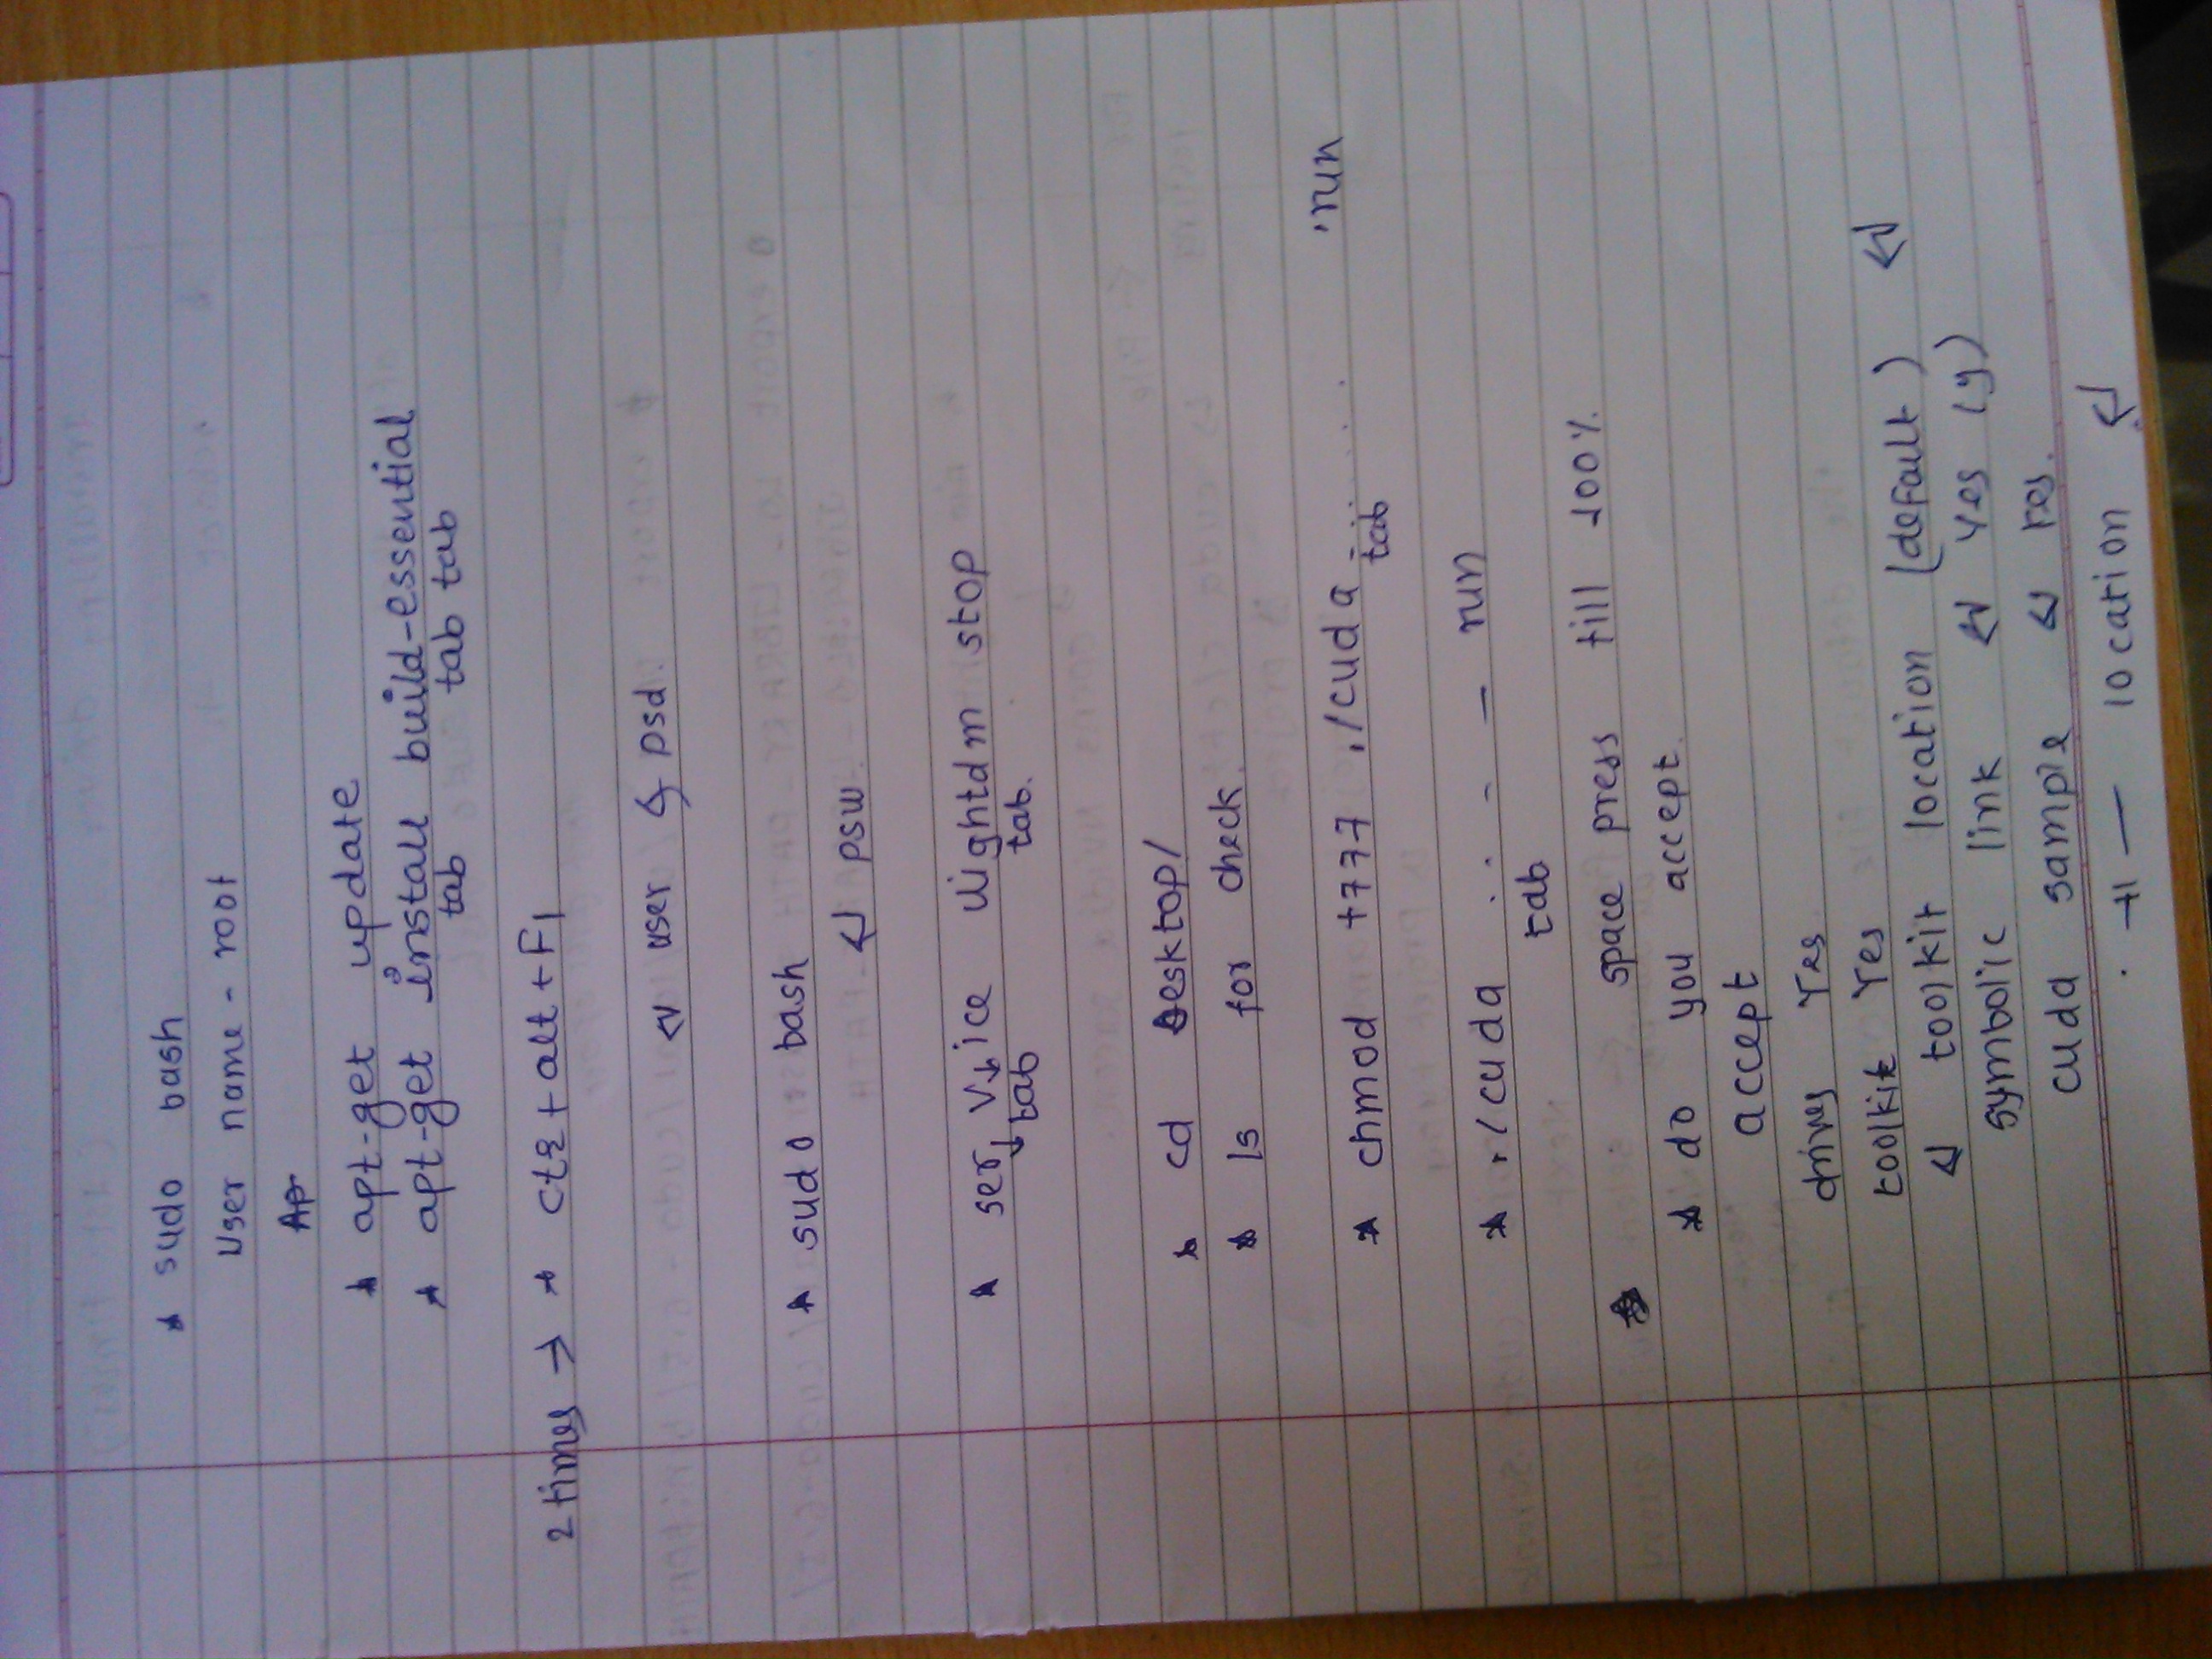 * sudo bash
User name - root
* apt-get update
* apt-get install build-essential
tab tab tab
2 times → * ctr + alt + F1
↵ user & psd
* sudo bash
↵ psw
* service lightdm stop
tab tab.
* cd Desktop/
* ls for check.
* chmod +777 ./cuda ........ .run
tab
* ./cuda . . - — run
tab
* space press till 100%
* do you accept.
accept
drives Yes
toolkit Yes
↵ toolkit location (default) ↵
symbolic link ↵ Yes (y)
cuda sample ↵ Yes.
. —11— location ↵